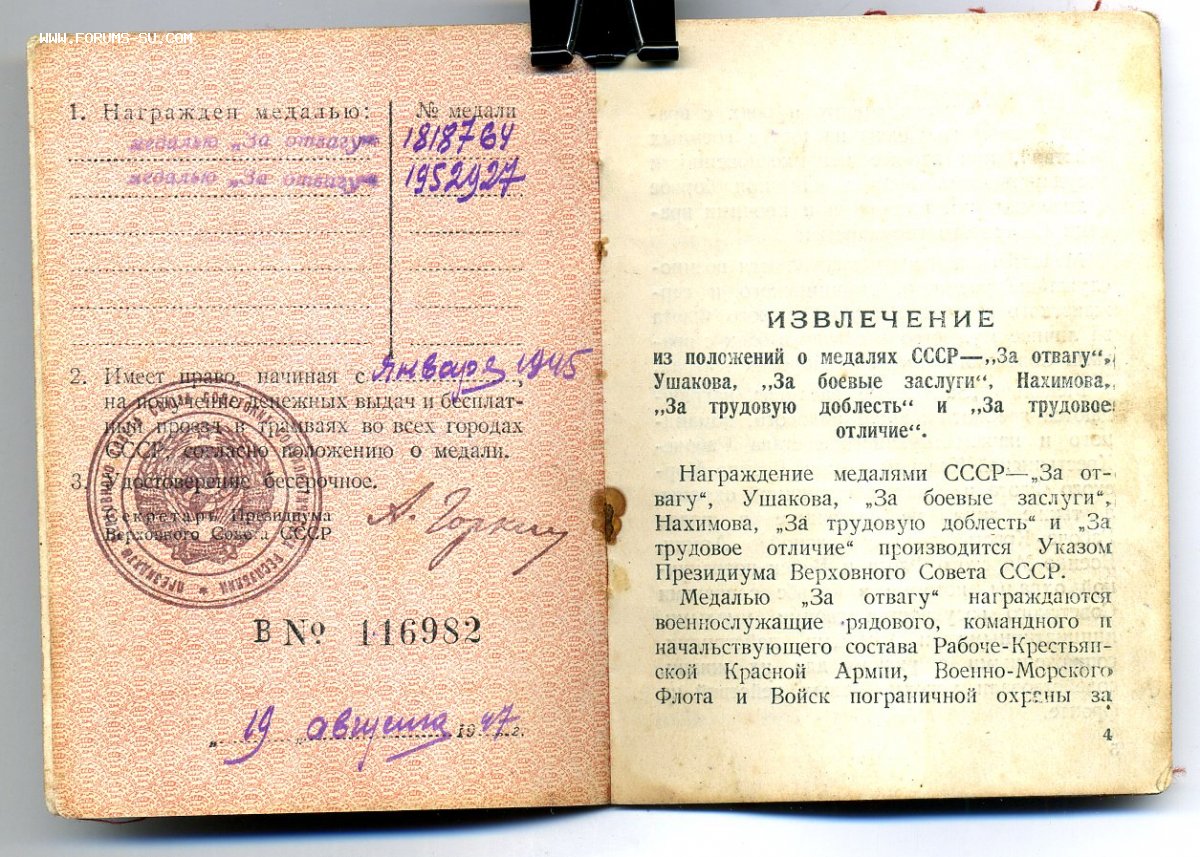 WWW.FORUMS-SU.COM
1. Награжден медалью:
№ медали
медалью „За отвагу“
1818764
медалью „За отвагу“
1952927
2. Имеет право, начиная с января 1945,
на получение денежных выдач и бесплат-
ный проезд в трамваях во всех городах
СССР, согласно положению о медали.
3. Удостоверение бессрочное.
Секретарь Президиума
Верховного Совета СССР
А. Горкин
В № 116982
„19 августа 1947 г.
ИЗВЛЕЧЕНИЕ
из положений о медалях СССР—„За отвагу“,
Ушакова, „За боевые заслуги“, Нахимова,
„За трудовую доблесть“ и „За трудовое
отличие“.
Награждение медалями СССР—„За от-
вагу“, Ушакова, „За боевые заслуги“,
Нахимова, „За трудовую доблесть“ и „За
трудовое отличие“ производится Указом
Президиума Верховного Совета СССР.
Медалью „За отвагу“ награждаются
военнослужащие рядового, командного и
начальствующего состава Рабоче-Крестьян-
ской Красной Армии, Военно-Морского
Флота и Войск пограничной охраны за
4